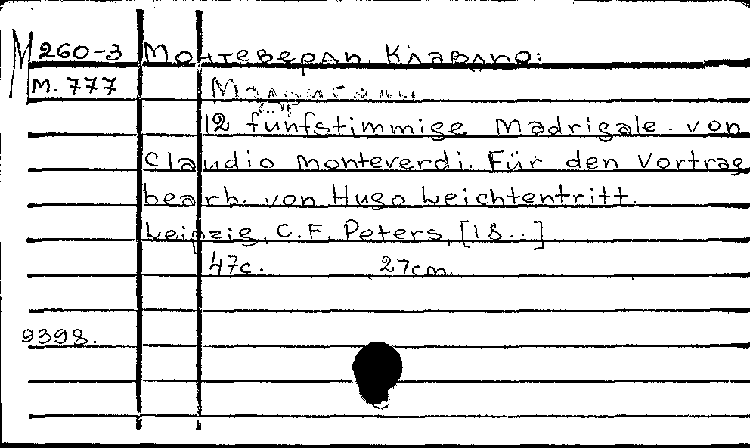 М 260-3 Монтеверди, Клавдио:
М. 777 Мадригали
12 fünfstimmige Madrigale von
Claudio Monteverdi. Für den Vortrag
bearb. von Hugo Leichtentritt.
Leipzig, C.F. Peters, [18..]
47с. 27cm.
9398.